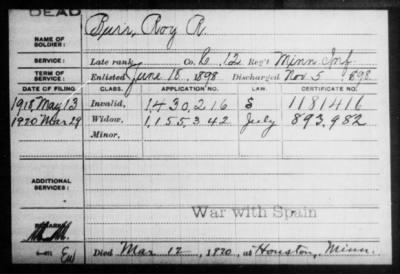 DEAD
NAME OF SOLDIER: Burr, Roy R.
SERVICE: Late rank Co. C, 12 Reg't Minn. Inf.
TERM OF SERVICE: Enlisted June 18, 1898 Discharged Nov. 5 1898
DATE OF FILING. CLASS. APPLICATION NO. LAW. CERTIFICATE NO.
1918, May 13 Invalid, 1,430,216 S 1181416
1920 Mar 29 Widow, 1,155,342 July 893,982
Minor,
ADDITIONAL SERVICES:
War with Spain
REMARKS:
Died Mar 12, 1920, at Houston, Minn.